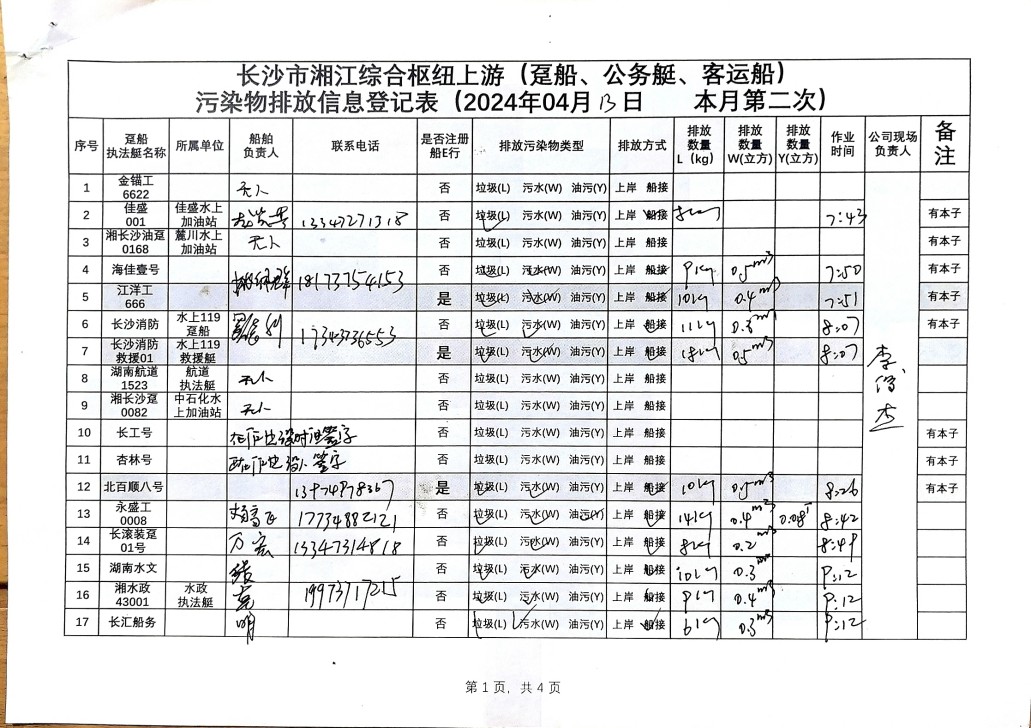 长沙市湘江综合枢纽上游（趸船、公务艇、客运船）
污染物排放信息登记表（2024年04月13日 本月第二次）
序号 趸船执法艇名称 所属单位 船舶负责人 联系电话 是否注册船E行 排放污染物类型 排放方式 排放数量L（kg） 排放数量W(立方) 排放数量Y(立方) 作业时间 公司现场负责人 备注
1 金锚工6622 无人 否 垃圾(L) 污水(W) 油污(Y) 上岸 船接
2 佳盛001 佳盛水上加油站 13347271318 否 垃圾(L) 污水(W) 油污(Y) 上岸 船接 8kg 7:43 有本子
3 湘长沙油趸0168 麓川水上加油站 无人 否 垃圾(L) 污水(W) 油污(Y) 上岸 船接 有本子
4 海佳壹号 18173754153 否 垃圾(L) 污水(W) 油污(Y) 上岸 船接 9kg 0.5m³ 7:50 有本子
5 江洋工666 是 垃圾(L) 污水(W) 油污(Y) 上岸 船接 10kg 0.4m³ 7:51 有本子
6 长沙消防 水上119趸船 17343736553 否 垃圾(L) 污水(W) 油污(Y) 上岸 船接 11kg 0.3m³ 8:07 有本子
7 长沙消防救援01 水上119救援艇 是 垃圾(L) 污水(W) 油污(Y) 上岸 船接 18kg 0.5m³ 8:07
李
杰
8 湖南航道1523 航道执法艇 无人 否 垃圾(L) 污水(W) 油污(Y) 上岸 船接
9 湘长沙趸0082 中石化水上加油站 无人 否 垃圾(L) 污水(W) 油污(Y) 上岸 船接
10 长工号 在作业没时间签字 否 垃圾(L) 污水(W) 油污(Y) 上岸 船接 有本子
11 杏林号 在作业没人签字 否 垃圾(L) 污水(W) 油污(Y) 上岸 船接 有本子
12 北百顺八号 13974978367 是 垃圾(L) 污水(W) 油污(Y) 上岸 船接 10kg 0.5m³ 8:26 有本子
13 永盛工0008 杨高飞 17734882121 否 垃圾(L) 污水(W) 油污(Y) 上岸 船接 14kg 0.4m³ 0.08 8:42
14 长滚装趸01号 万宏 13347314818 否 垃圾(L) 污水(W) 油污(Y) 上岸 船接 8kg 0.2m³ 8:49
15 湖南水文 否 垃圾(L) 污水(W) 油污(Y) 上岸 船接 10kg 0.3m³ 9:12
16 湘水政43001 水政执法艇 克 19973117215 否 垃圾(L) 污水(W) 油污(Y) 上岸 船接 9kg 0.4m³ 9:12
17 长汇船务 明 否 垃圾(L) 污水(W) 油污(Y) 上岸 船接 6kg 0.3m³ 9:12
第 1 页，共 4 页